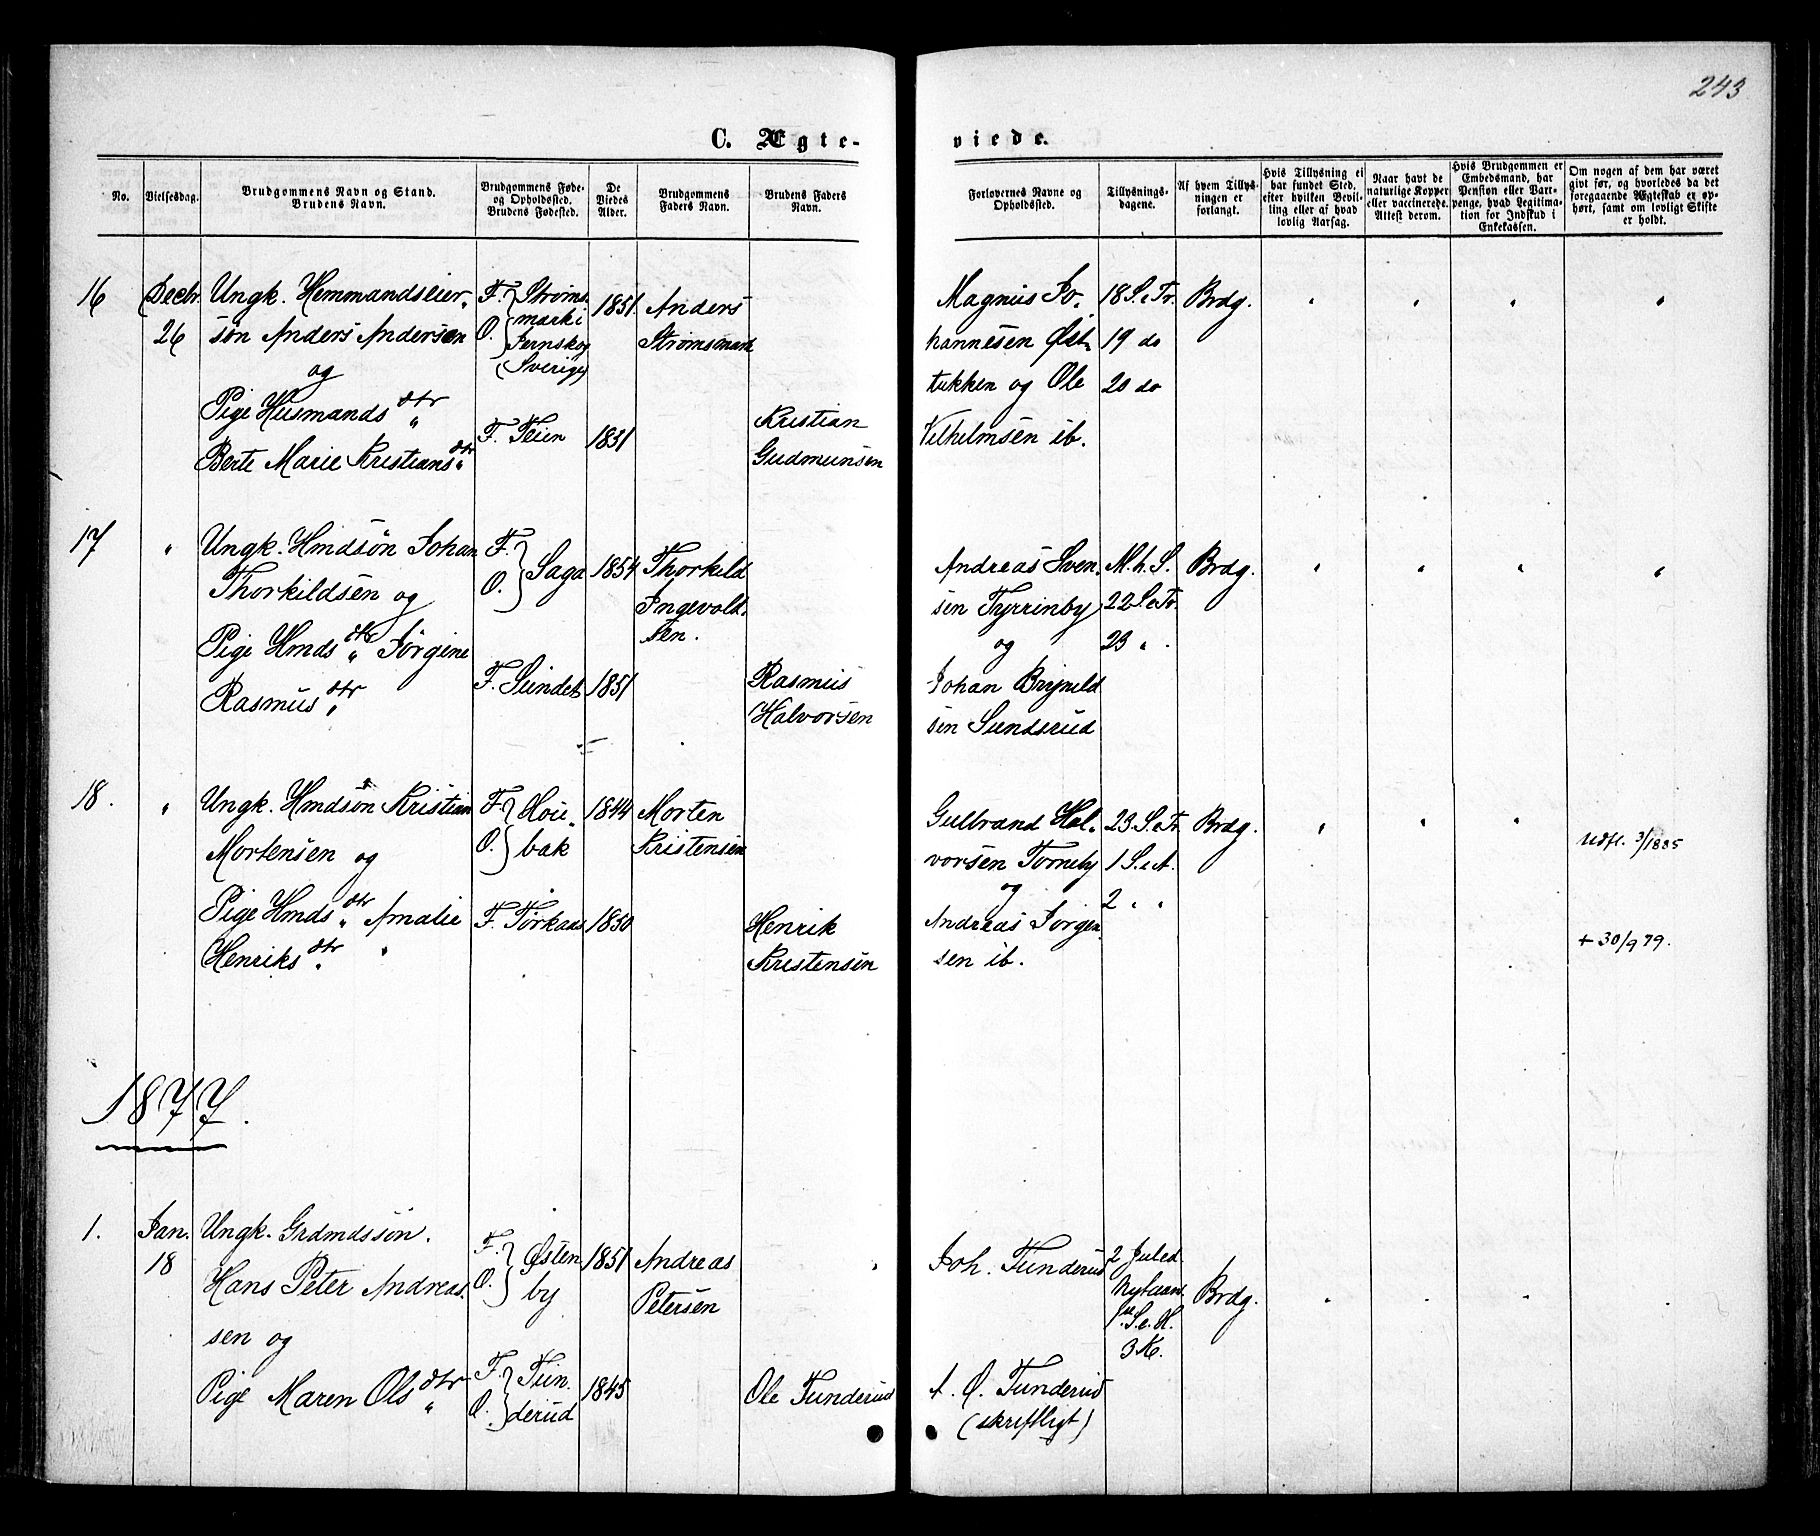 243
C. Ægte-
viede.
No.
Vielsesdag.
Brudgommens Navn og Stand.
Brudens Navn.
Brudgommens Føde-
og Opholdssted.
Brudens Fødested.
De
Viedes
Alder.
Brudgommens
Faders Navn.
Brudens Faders
Navn.
Forlovernes Navne og
Opholdssted.
Tillysnings-
dagene.
Af hvem Tillys-
ningen er
forlangt.
Hvis Tillysning ei
har fundet Sted,
efter hvilken Bevil-
ling eller af hvad
lovlig Aarsag.
Naar havt de
naturlige Kopper
eller vaccinerede.
Attest derom.
Hvis Brudgommen er
Embedsmand, har
Pension eller Vart-
penge, hvad Legitima-
tion for Indskud i
Enkekassen.
Om nogen af dem har været
givt før, og hvorledes da det
foregaaende Ægteskab er op-
hørt, samt om lovligt Skifte
er holdt.
16
Decbr.
26
Ungk. Hemmandseier-
søn Anders Andersen
og
Pige Husmandsdtr
Berte Marie Kristiansdtr
F. O. Strøms-
mark i
Jernskog
(Sverige)
F. Teien
1851.
1831
Anders
Strømsmark
Kristian
Gudmunsen
Magnus Jo-
hannesen Øst-
tukken og Ole
Vilhelmsen ib.
18 S. e. Tr.
19 do
20 do
Brdg.
17
"
Ungk. Hmdsøn Johan
Thorkildsen og
Pige Hmdsdtr Jørgine
Rasmusdtr
F. O. Saga
F. Sundet
1854
1851
Thorkild
Ingevold-
sen.
Rasmus
Halvorsen
Andreas Sven-
sen Tyrrinby
og
Johan Brynild
sen Sundsrud
M.h.S.
22 S.e.Tr.
23 "
Brdg.
18.
"
Ungk. Hmdsøn Kristian
Mortensen og
Pige Hmdsdtr Amalie
Henriksdtr
F. O. Hou-
bak
F. Tørkaas
1844
1850
Morten
Kristensen
Henrik
Kristensen
Gulbrand Hal-
vorsen Torneby
og
Andreas Jørgen-
sen ib.
23 S.e.Tr.
1 S.e.A.
2 " "
Brdg.
Udfl. 3/1885
+ 30/9 79.
1877.
1.
Jan.
18
Ungk. Grdmdssøn.
Hans Peter Andreas-
sen og
Pige Maren Olsdtr
F. O. Østen
by
F. O. Tun-
derud
1851
1845
Andreas
Petersen
Ole Tunderud
Joh. Tunderud
A. O. Tunderud
(skriftligt)
2 Juled.
Nytaars
S.e.H.
3 K.
Brdg.